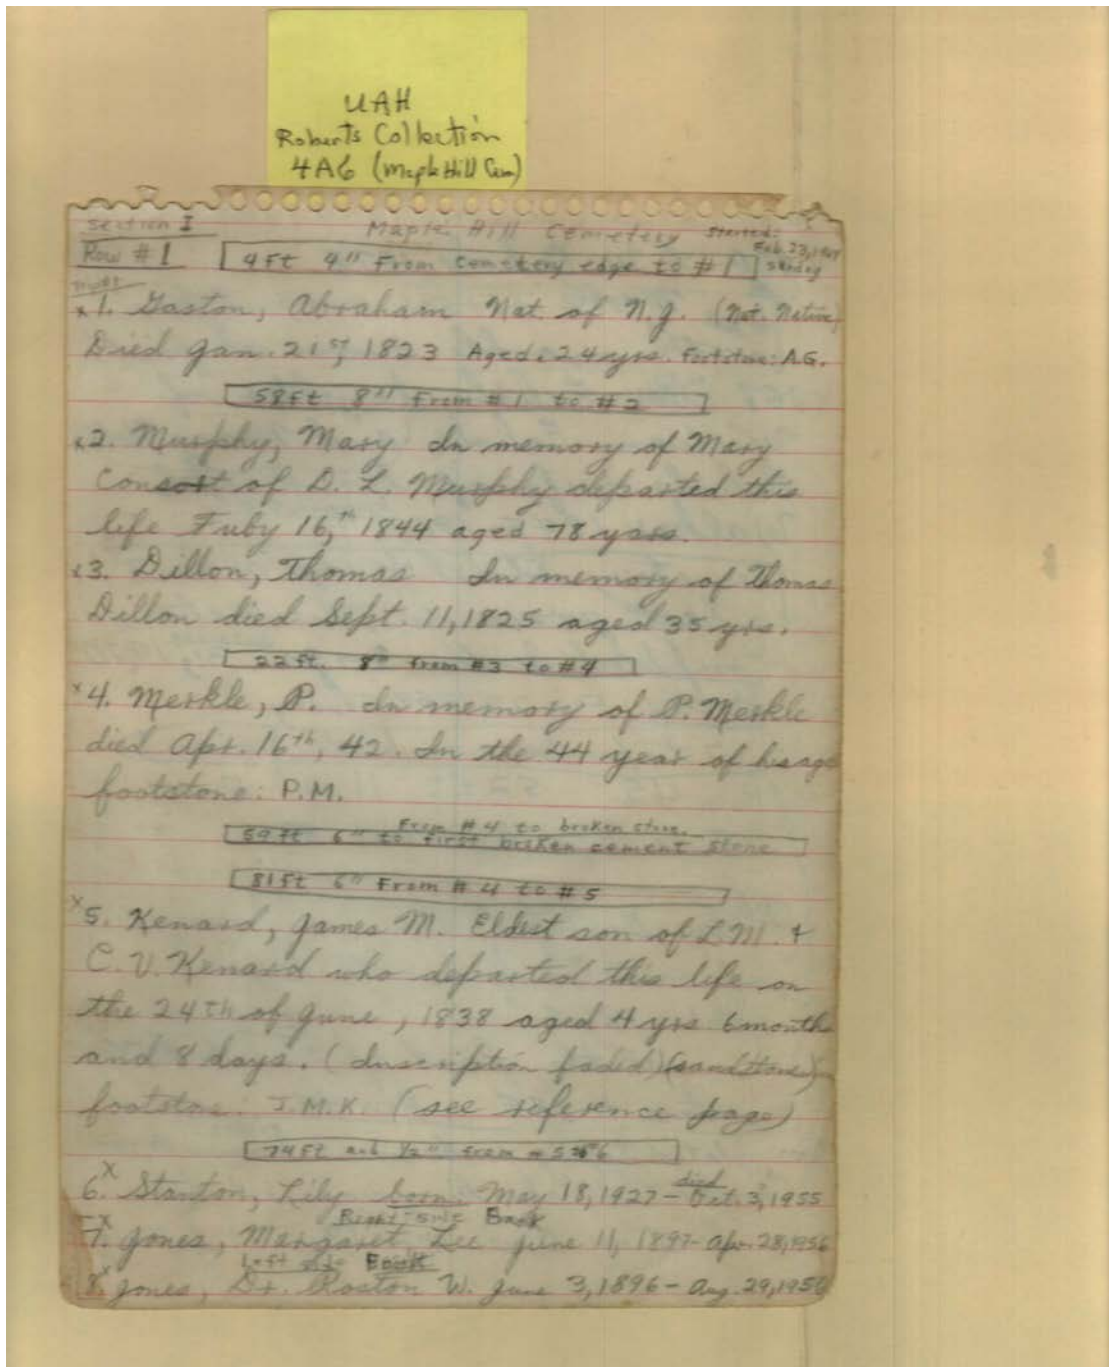 UAH
Roberts Collection
4A6 (Maple Hill Cem)
Section I Maple Hill Cemetery Started:
Feb. 23,
Row #1 4ft 4" From Cemetery edge to #1 Sunday
x 1. Gaston, Abraham Nat. of N.J. (Nat. Native)
Died Jan. 21st, 1823 Aged. 24 yrs. Footstone: A.G.
58ft 8" From #1 to #2
x2. Murphy, Mary In memory of Mary
Consort of D. L. Murphy departed this
life Fuby 16,th 1844 aged 78 yars.
x3. Dillon, Thomas In memory of Thomas
Dillon died Sept. 11, 1825 aged 35 yrs.
22ft. 8" from #3 to #4
x 4. Merkle, P. In memory of P. Merkle
died Apr. 16th, 42. In the 44 year of his age
footstone: P.M.
From #4 to broken stone.
59ft 6" to first broken cement stone
81ft 6" From #4 to #5
x 5. Kenard, James M. Eldest son of L.M. &
C.V. Kenard who departed this life on
the 24th of June, 1838 aged 4 yrs 6 months
and 8 days. (Inscription faded) (sandstone)
footstone: J.M.K. (see reference page)
74ft and 1/2" from #5 to 6
died
6. x Stanton, Lily born: May 18, 1927 - Oct. 3, 1955
Right side Back
7. x Jones, Margaret Lee June 11, 1897 - Apr. 28, 1956
Left side Back
8. x Jones, Dr. Roston W. June 3, 1896 - Aug. 29, 1956